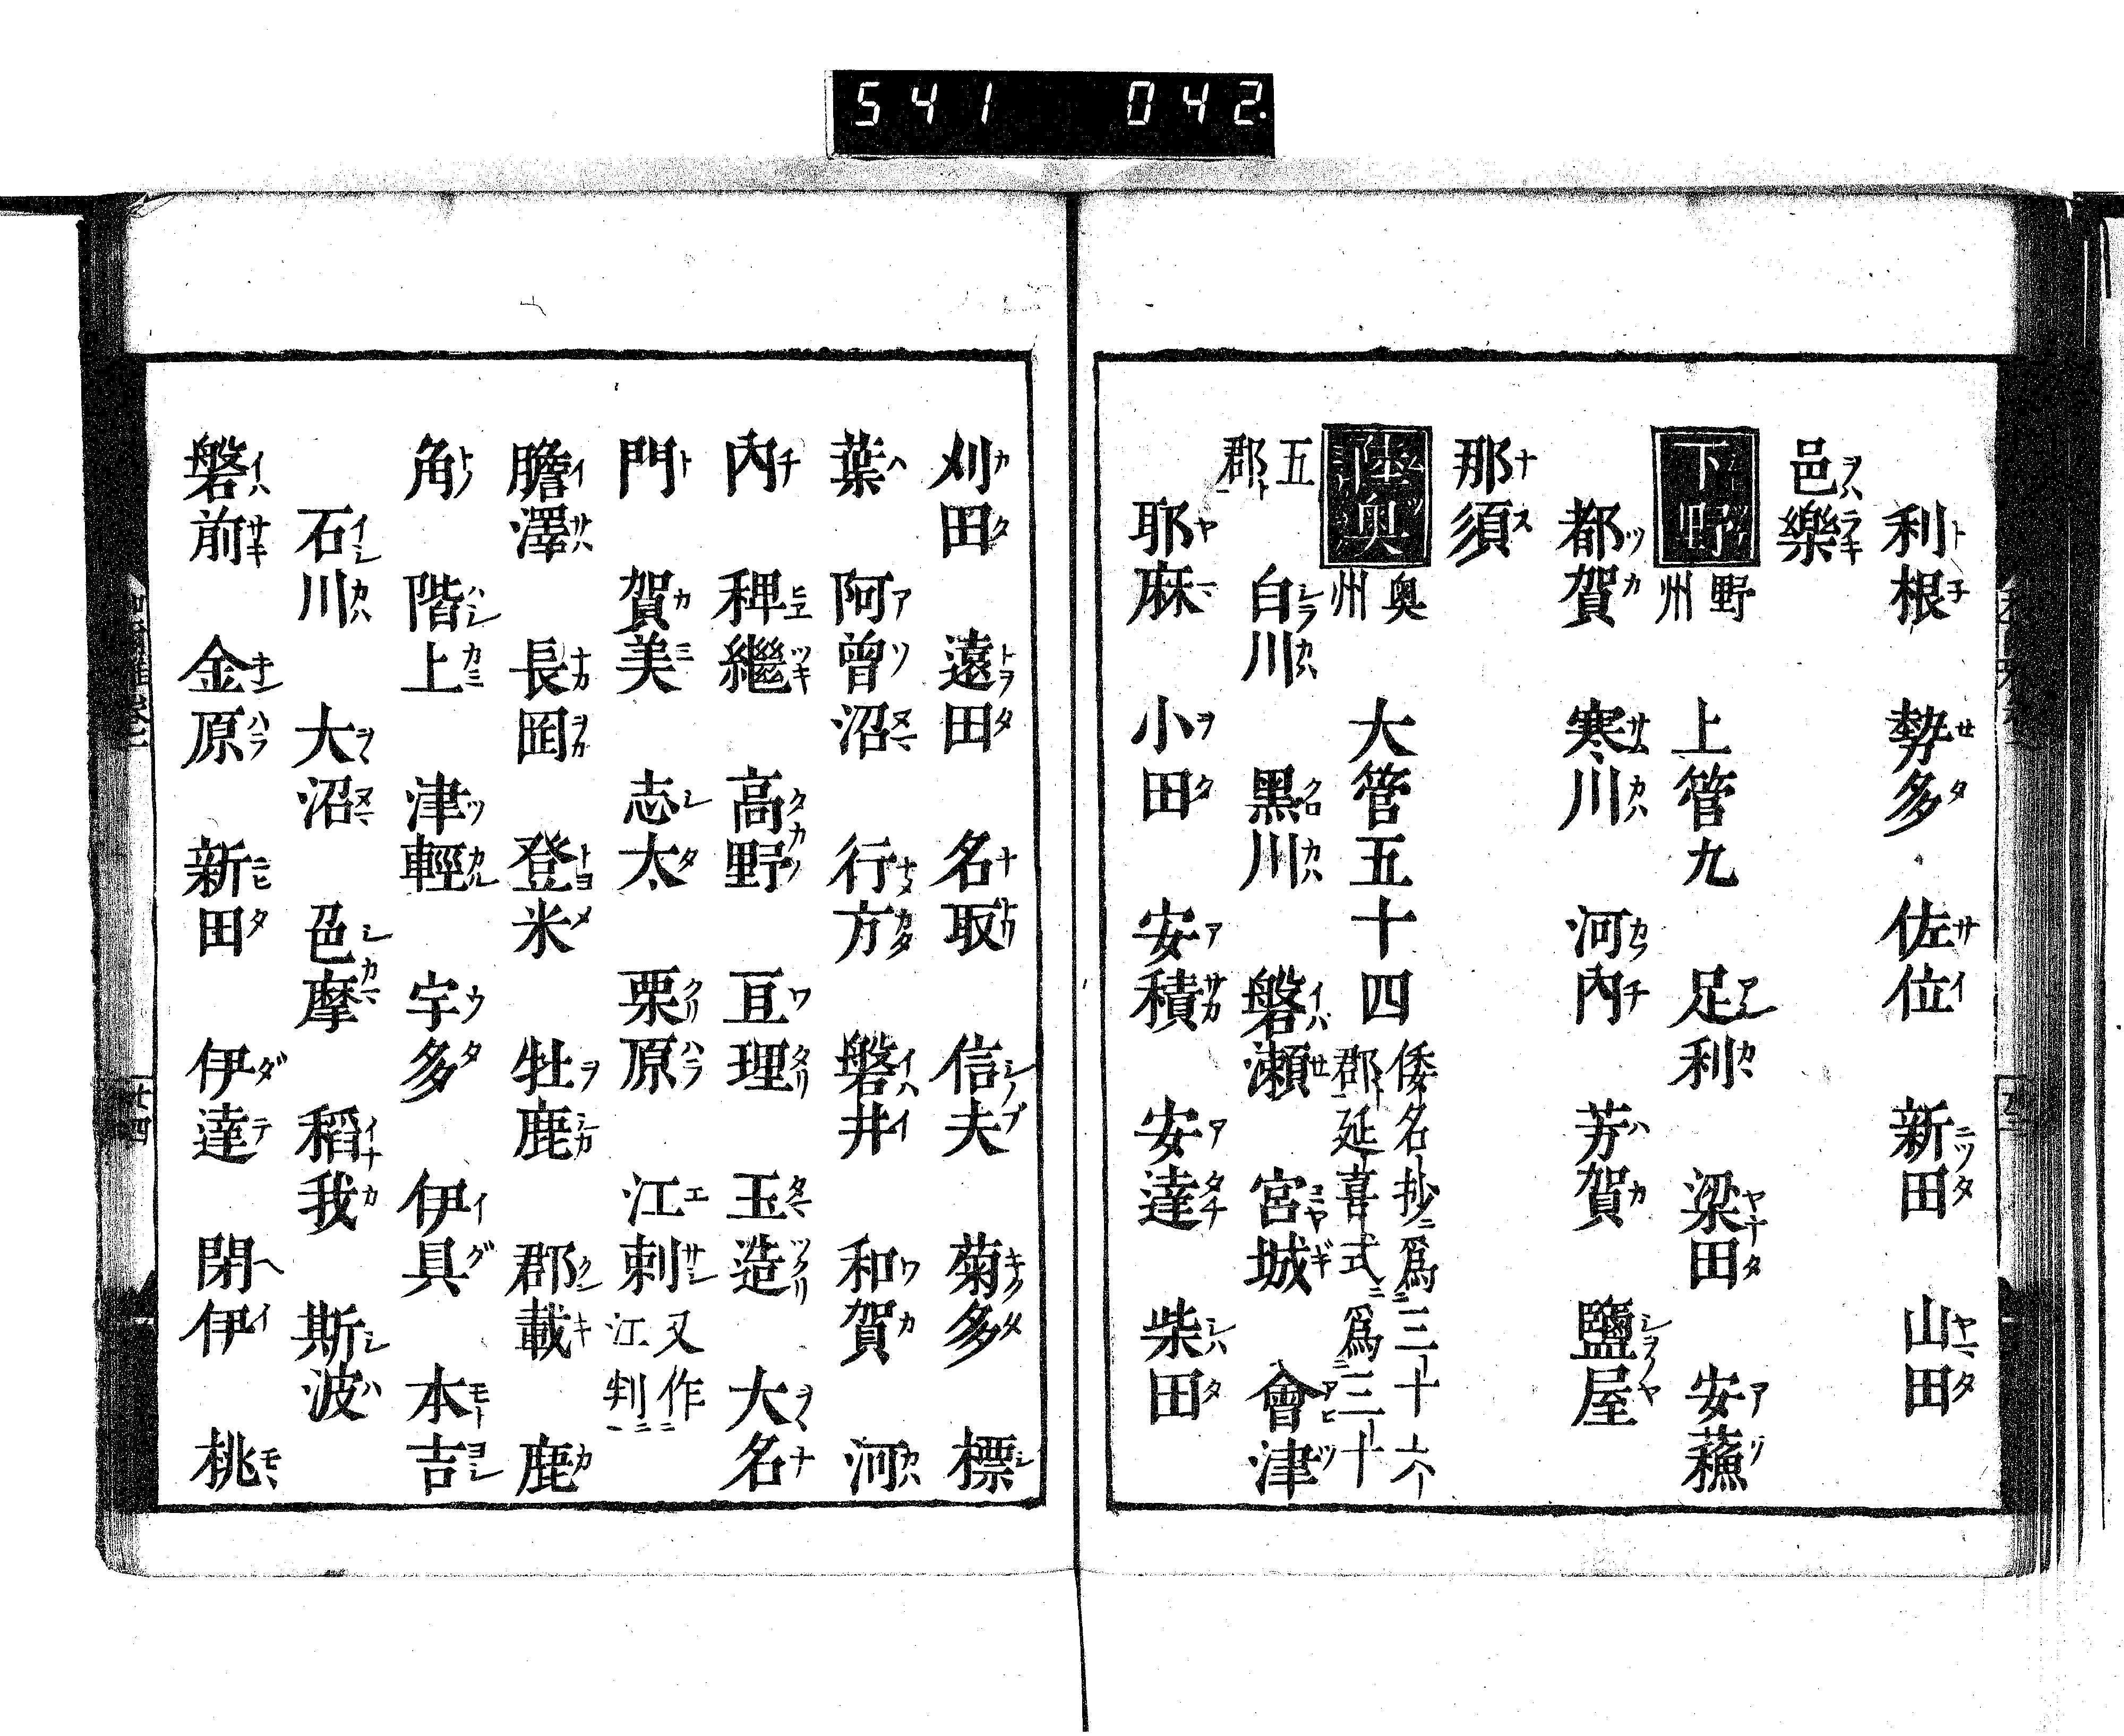 541 042.
利根 勢多 佐位 新田 山田
邑樂
下野 野州 上管九 足利 梁田 安蘓
都賀 寒川 河內 芳賀 鹽屋
那須
陸奥 奥州 大管五十四 倭名抄ニ爲三十六郡ト延喜式ニ爲三十
五郡ト 白川 黑川 磐瀬 宮城 會津
耶麻 小田 安積 安達 柴田
刈田 遠田 名取 信夫 菊多 標
葉 阿曾沼 行方 磐井 和賀 河
內 稗繼 高野 亘理 玉造 大名
門 賀美 志太 栗原 江刺 又作江判
膽澤 長岡 登米 牡鹿 郡載 鹿
角 階上 津輕 宇多 伊具 本吉
石川 大沼 色摩 稻我 斯波
磐前 金原 新田 伊達 閉伊 桃
廿四